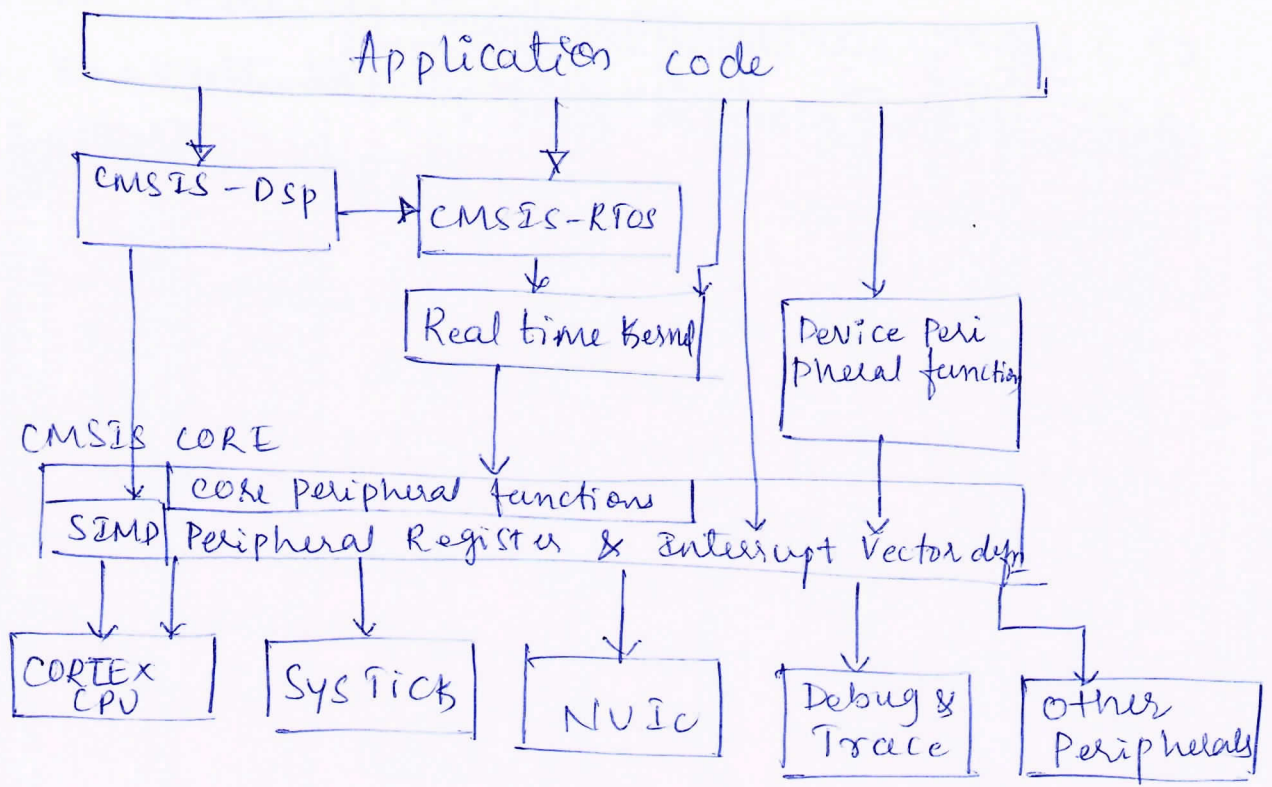 Application code
CMSIS - DSP
CMSIS-RTOS
Real time Kernel
Device Peri
pheral function
CMSIS CORE
core peripheral functions
SIMD
Peripheral Register & Interrupt Vector defn
CORTEX
CPU
SysTick
NVIC
Debug &
Trace
other
Peripherals